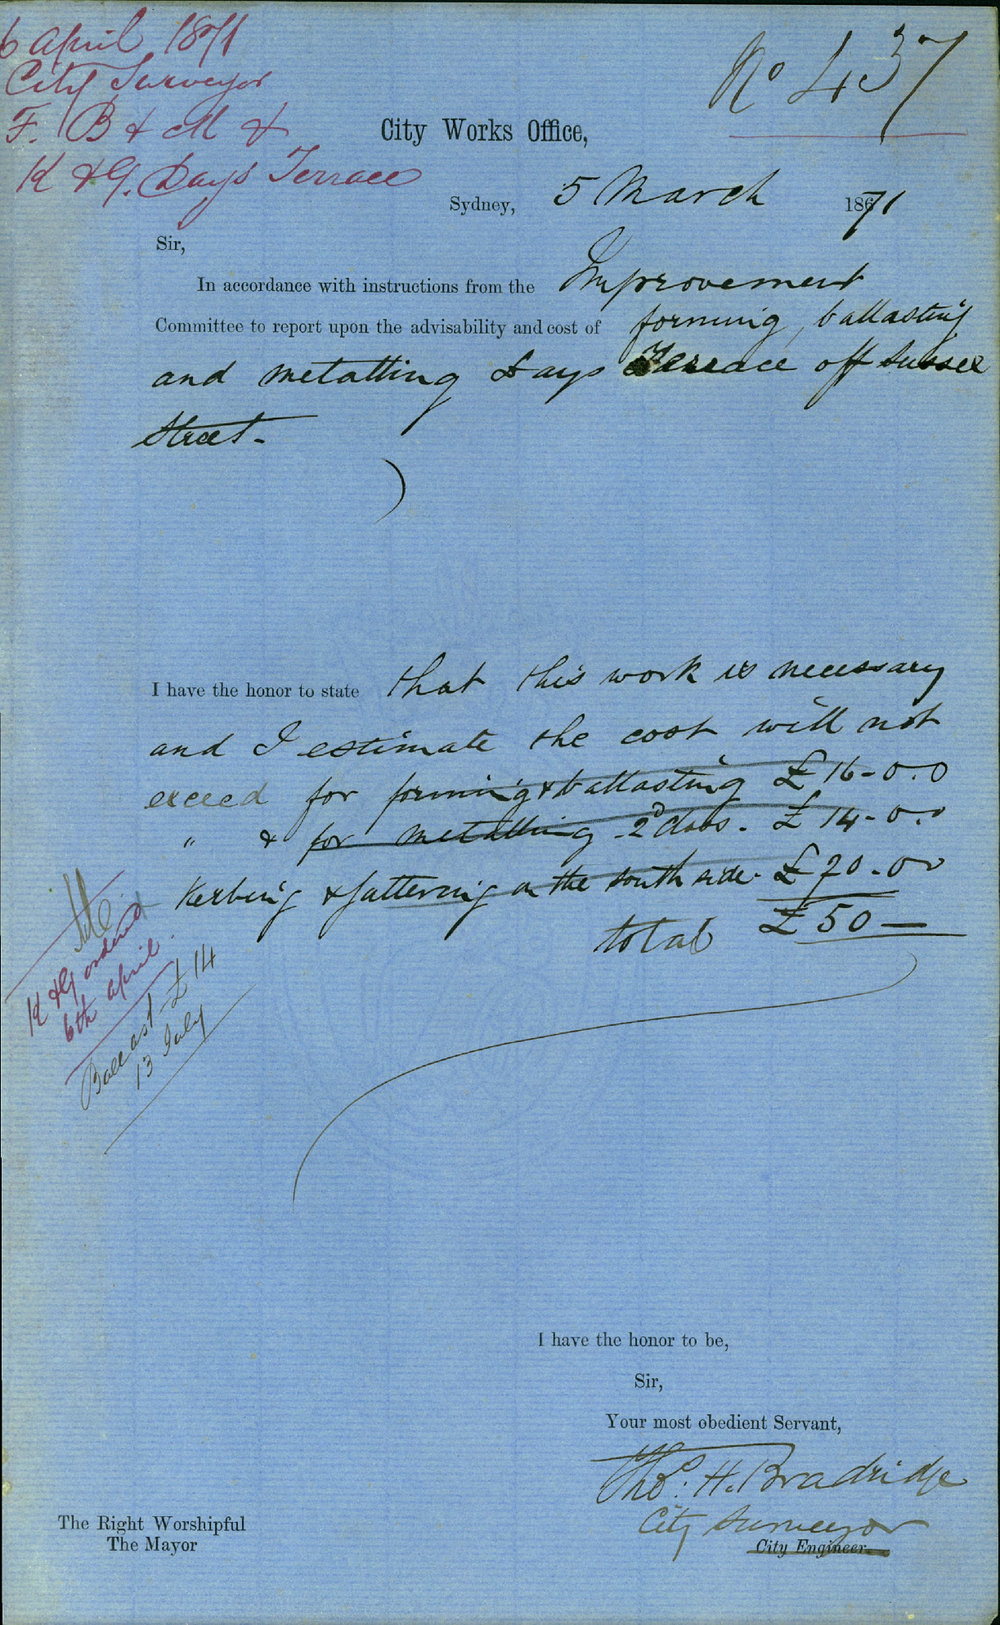 6 April 1871
City Surveyor
F. B & M &
K & G. Days Terrace
No 437
City Works Office,
Sydney, 5 March 1871
Sir,
In accordance with instructions from the Improvement
Committee to report upon the advisability and cost of forming, ballasting
and metalling Days Terrace off Sussex
Street.
I have the honor to state that this work is necessary
and I estimate the cost will not
exceed for forming & ballasting £16-0.0
" & for metalling £14-0.0
Kerbing & guttering on the south side. £20-0.0
total £50—
K & G ordered
6th April
Ballast £14
13 July
I have the honor to be,
Sir,
Your most obedient Servant,
Thos. H. Bradridge
City Surveyor
City Engineer.
The Right Worshipful
The Mayor